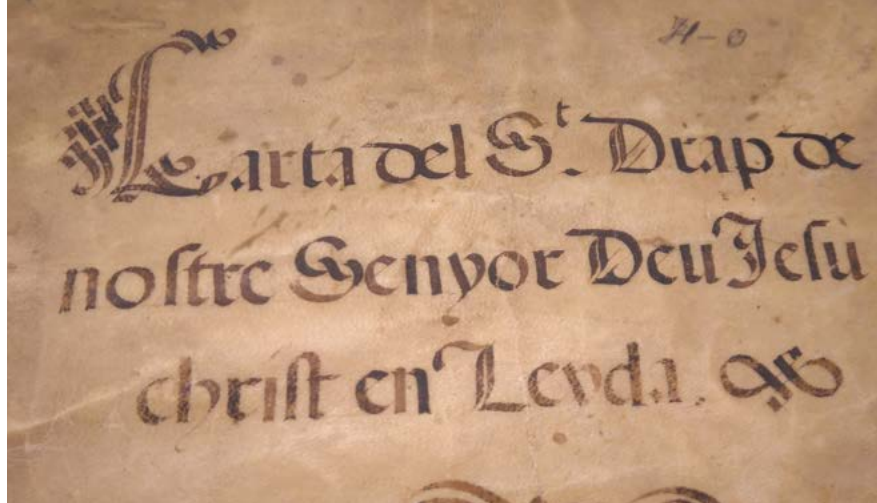 H-0
Carta del S.t Drap de
nostre Senyor Deu Jesu
christ en Leyda. &